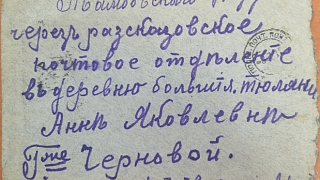 Тамбовской
черезъ разсказовское
почтовое отдѣленіе
въ деревню большія тюляни
Аннѣ Яковлевнѣ
Гже Черновой.